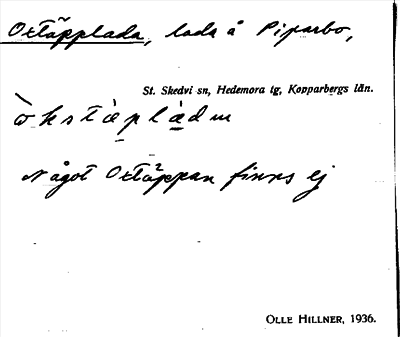 Oxtäpplada, lada å Piparbo,
St. Skedvi sn, Hedemora tg, Kopparbergs län.
Något Oxtäppan finns ej
OLLE HILLNER, 1936.